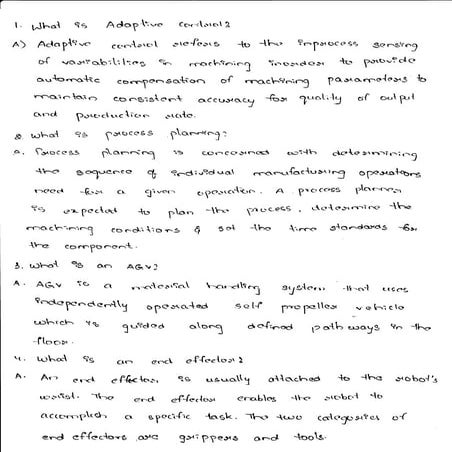 1. What is Adaptive control?
A) Adaptive control refers to the inprocess sensing
of variabilities in machining inorder to provide
automatic compensation of machining parameters to
maintain consistent accuracy for quality of output
and production rate.
2. what is process planning?
A. Process planning is concerned with determining
the sequence of individual manufacturing operations
need for a given operation. A process planner
is expected to plan the process, determine the
machining conditions & set the time standards for
the component.
3. what is an AGV?
A. AGV is a material handling system that uses
independently operated self propeller vehicle
which is guided along defined path ways in the
floor.
4. what is an end effector?
A. An end effector is usually attached to the robot's
wrist. The end effector enables the robot to
accomplish a specific task. The two categories of
end effectors are grippers and tools.